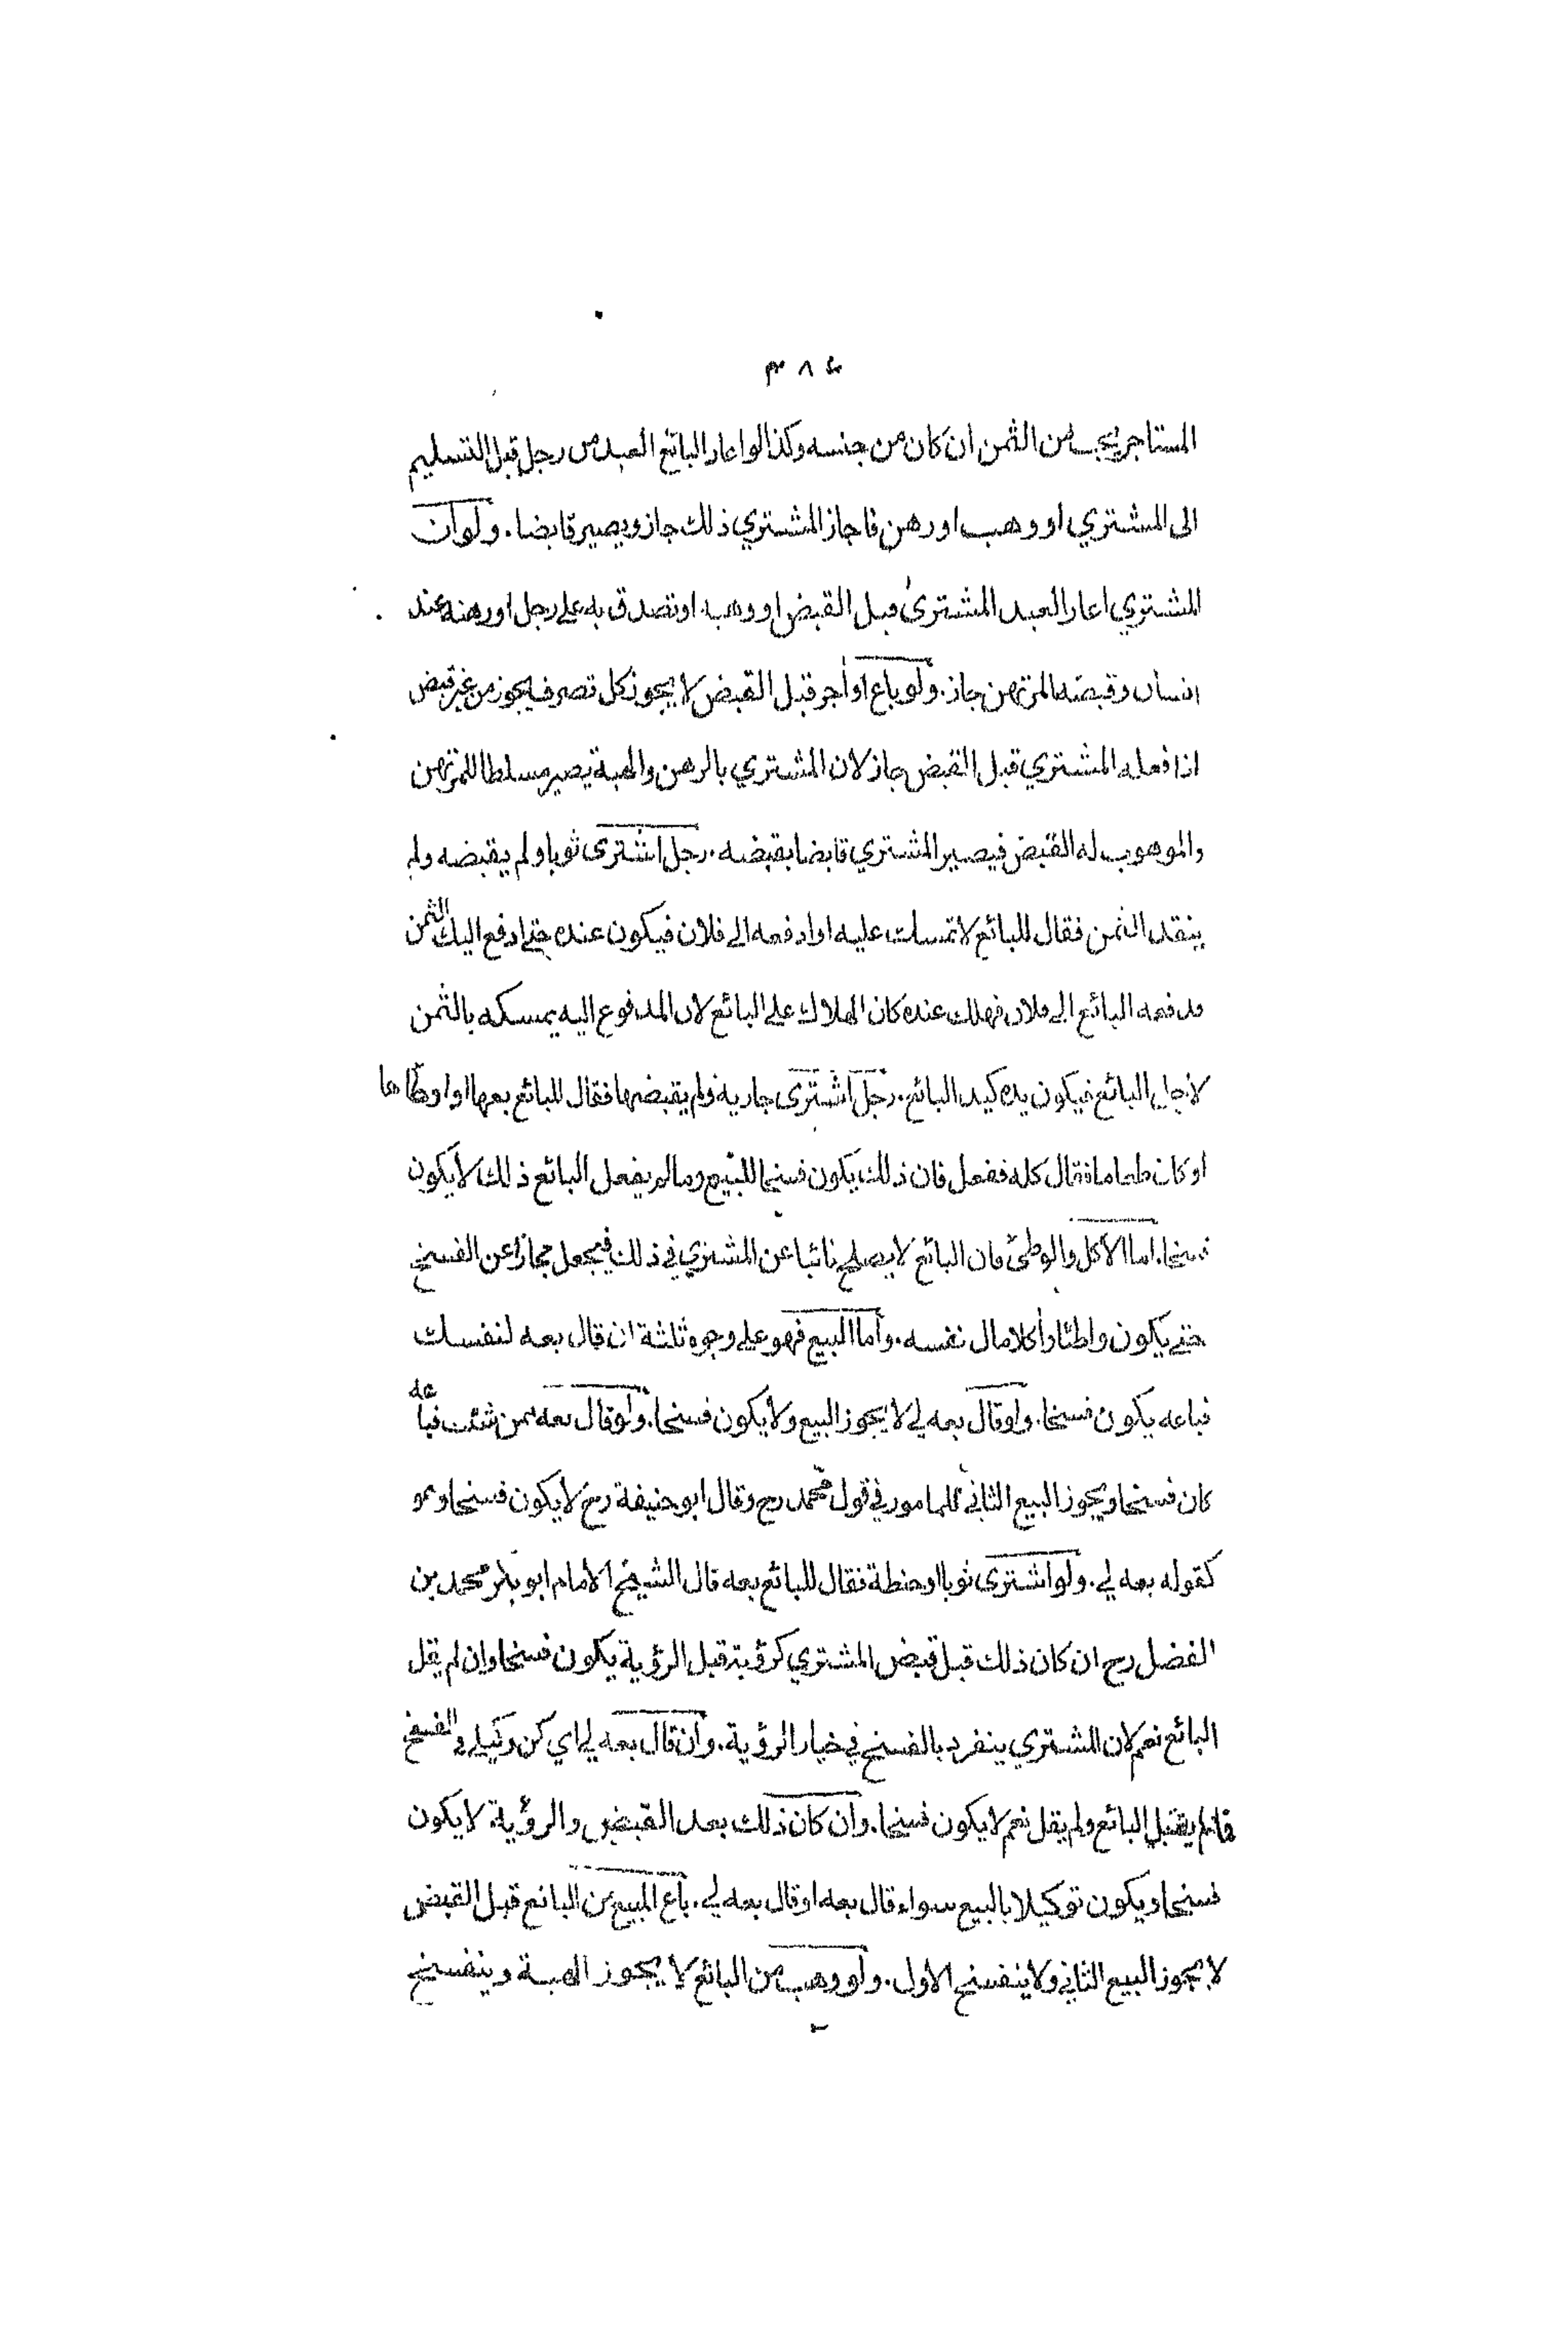 ٣٨٤
المستاجر يجب من الثمن ان كان من جنسه وكذا لو اعار البائع العبد من رجل قبل التسليم
الى المشتري او وهب او رهن فاجاز المشتري ذلك جاز ويصير قابضا. ولو ان
المشتري اعار العبد المشترى قبل القبض او وهب او تصدق به على رجل او رهنه عند
انسان وقبضه المرتهن جاز. ولو باع او آجر قبل القبض لا يجوز كل تصرف يجوز من غير قبض
اذا فعله المشتري قبل القبض جاز لان المشتري بالرهن والهبة يصير مسلطا للمرتهن
والموهوب له القبض فيصير المشتري قابضا بقبضه. رجل اشترى ثوبا ولم يقبضه ولم
ينقد الثمن فقال للبائع لا تمسك عليه او ادفعه الى فلان فيكون عنده حتى ادفع اليك الثمن
فدفعه البائع الى فلان فهلك عنده كان الهلاك على البائع لان المدفوع اليه يمسكه بالثمن
لاجل البائع فيكون يده كيد البائع. رجل اشترى جارية ولم يقبضها فقال للبائع بعها او اوطأها
او كان طعاما فقال كله ففعل فان ذلك يكون فسخا للبيع وما لم يفعل البائع ذلك لا يكون
فسخا. اما الاكل والوطئ فان البائع لا يصلح نائبا عن المشتري في ذلك فيجعل مجازا عن الفسخ
حتى يكون واطئا وآكلا مال نفسه. واما البيع فهو على وجوه ثلثة ان قال بعه لنفسك
فباعه يكون فسخا. ولو قال بعه لي لا يجوز البيع ولا يكون فسخا. ولو قال بعه ممن شئت فباعه
كان فسخا ويجوز البيع الثاني للمامور في قول محمد رح وقال ابو حنيفة رح لا يكون فسخا وهو
كقوله بعه لي. ولو اشترى ثوبا او حنطة فقال للبائع بعه قال الشيخ الامام ابو بكر محمد بن
الفضل رح ان كان ذلك قبل قبض المشتري كرؤيته قبل الرؤية يكون فسخا وان لم يقل
البائع نعم لان المشتري ينفرد بالفسخ في خيار الرؤية. وان قال بعه لي اي كن وكيلي في الفسخ
فما لم يقبل البائع ولم يقل نعم لا يكون فسخا. وان كان ذلك بعد القبض والرؤية لا يكون
فسخا ويكون توكيلا بالبيع سواء قال بعه او قال بعه لي. باع المبيع من البائع قبل القبض
لا يجوز البيع الثاني ولا ينفسخ الاول. ولو وهب من البائع لا يجوز الهبة وينفسخ